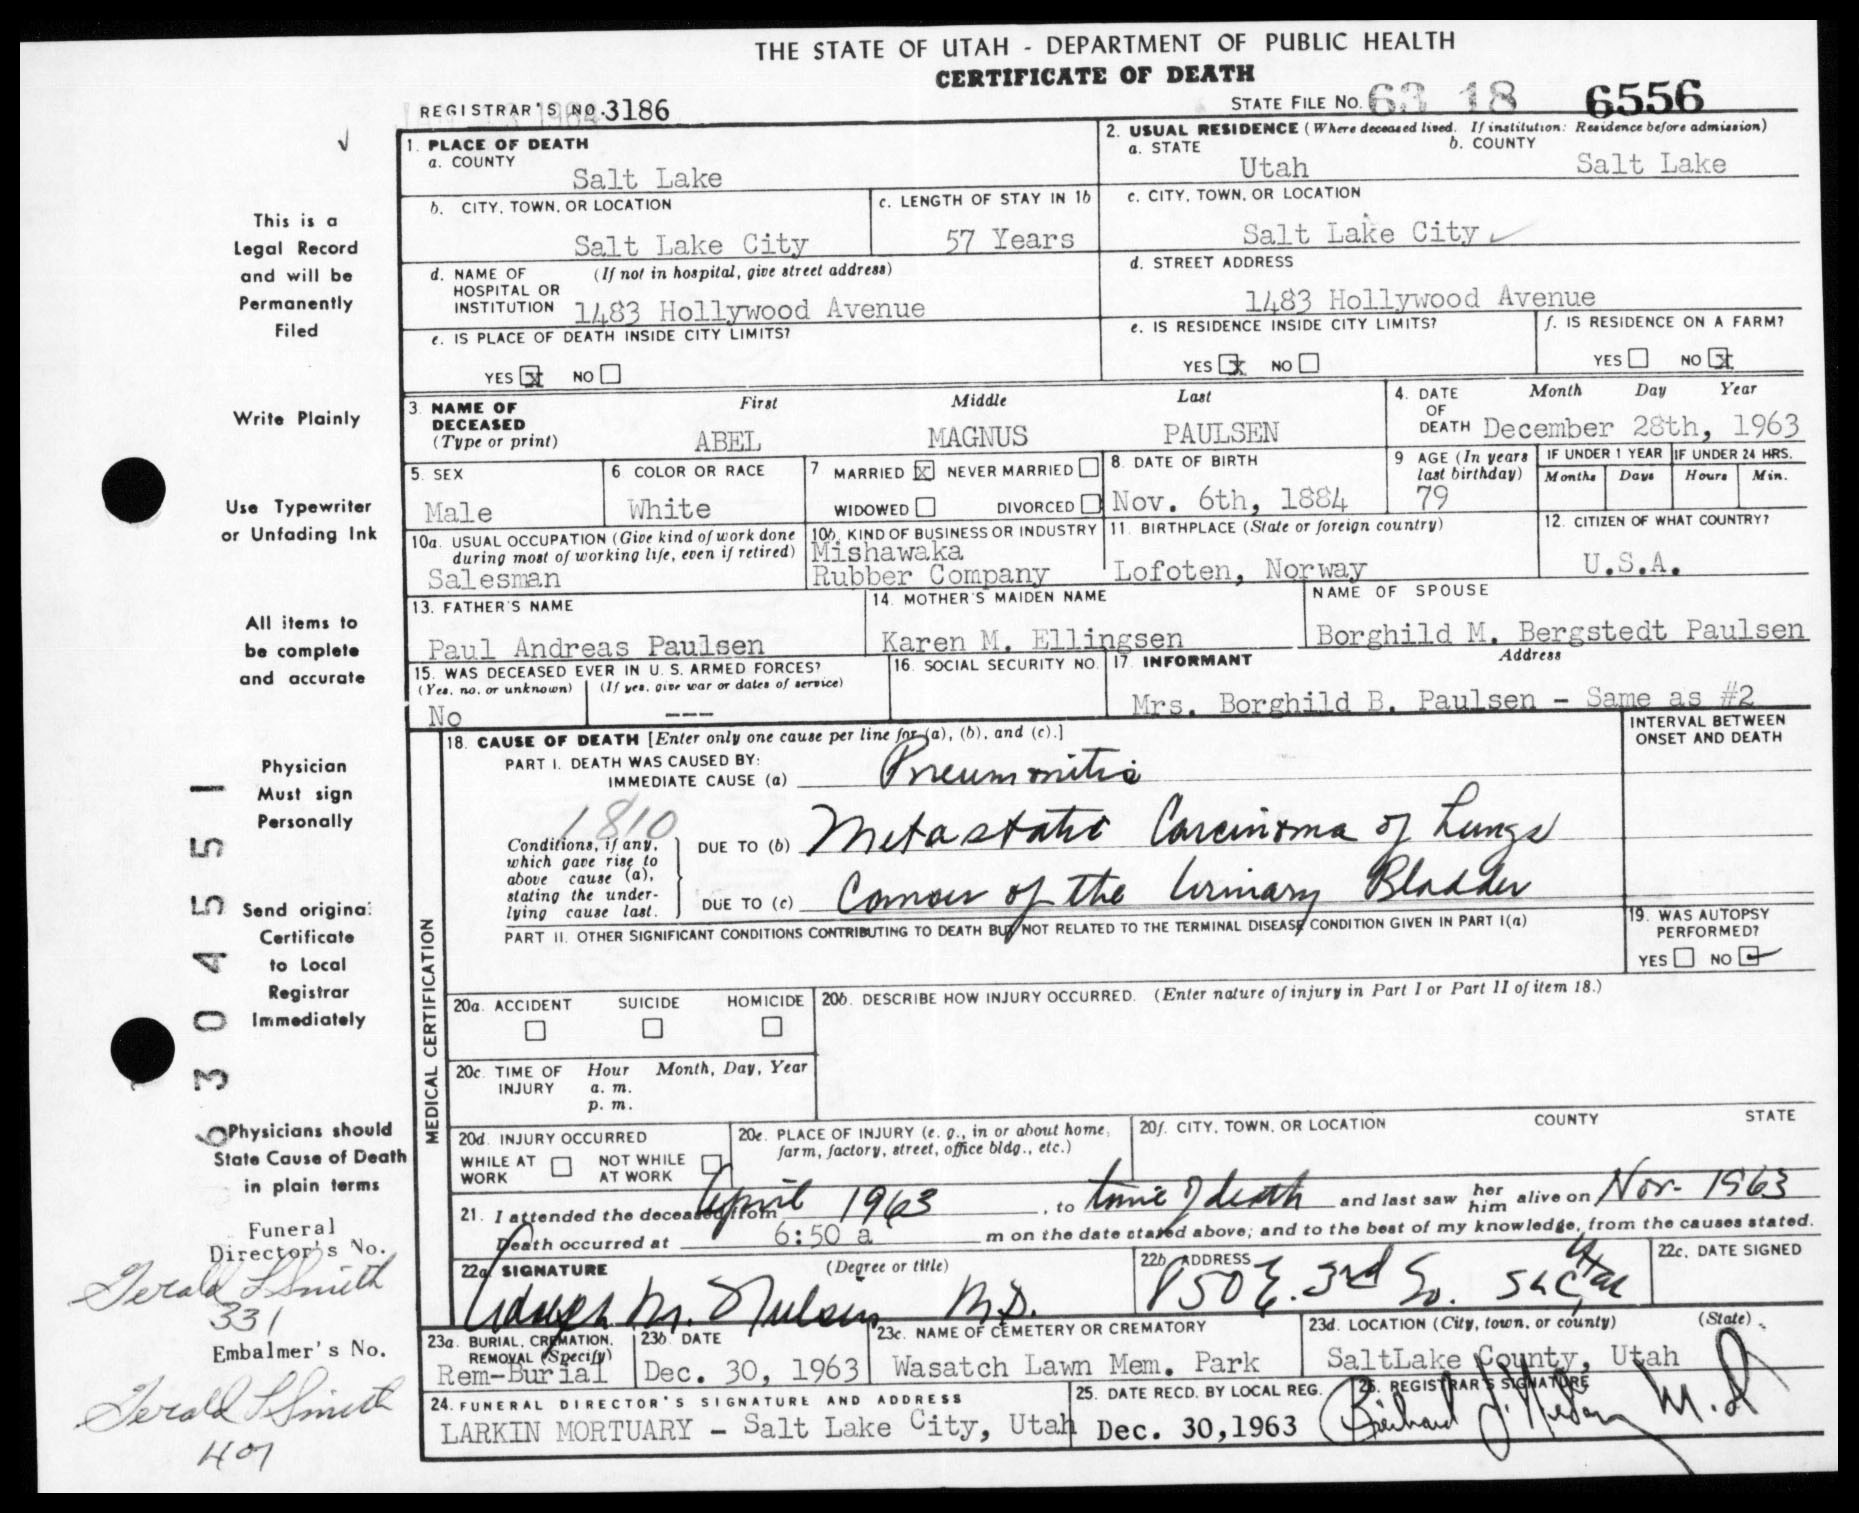 THE STATE OF UTAH - DEPARTMENT OF PUBLIC HEALTH
CERTIFICATE OF DEATH
REGISTRAR'S NO. 3186
STATE FILE NO. 63 18 6556
1. PLACE OF DEATH
a. COUNTY
Salt Lake
2. USUAL RESIDENCE (Where deceased lived. If institution: Residence before admission)
a. STATE
Utah
b. COUNTY
Salt Lake
b. CITY, TOWN, OR LOCATION
Salt Lake City
c. LENGTH OF STAY IN 1b
57 Years
c. CITY, TOWN, OR LOCATION
Salt Lake City
d. NAME OF HOSPITAL OR INSTITUTION
(If not in hospital, give street address)
1483 Hollywood Avenue
d. STREET ADDRESS
1483 Hollywood Avenue
e. IS PLACE OF DEATH INSIDE CITY LIMITS?
YES X NO
e. IS RESIDENCE INSIDE CITY LIMITS?
YES X NO
f. IS RESIDENCE ON A FARM?
YES NO X
3. NAME OF DECEASED (Type or print)
First Middle Last
ABEL MAGNUS PAULSEN
4. DATE OF DEATH
Month Day Year
December 28th, 1963
5. SEX
Male
6. COLOR OR RACE
White
7. MARRIED X NEVER MARRIED
WIDOWED DIVORCED
8. DATE OF BIRTH
Nov. 6th, 1884
9. AGE (In years last birthday)
79
IF UNDER 1 YEAR
Months Days
IF UNDER 24 HRS.
Hours Min.
10a. USUAL OCCUPATION (Give kind of work done during most of working life, even if retired)
Salesman
10b. KIND OF BUSINESS OR INDUSTRY
Mishawaka
Rubber Company
11. BIRTHPLACE (State or foreign country)
Lofoten, Norway
12. CITIZEN OF WHAT COUNTRY?
U.S.A.
13. FATHER'S NAME
Paul Andreas Paulsen
14. MOTHER'S MAIDEN NAME
Karen M. Ellingsen
NAME OF SPOUSE
Borghild M. Bergstedt Paulsen
15. WAS DECEASED EVER IN U. S. ARMED FORCES?
(Yes, no, or unknown) (If yes, give war or dates of service)
No ---
16. SOCIAL SECURITY NO.
17. INFORMANT Address
Mrs. Borghild B. Paulsen - Same as #2
18. CAUSE OF DEATH [Enter only one cause per line for (a), (b), and (c).]
INTERVAL BETWEEN ONSET AND DEATH
PART I. DEATH WAS CAUSED BY:
IMMEDIATE CAUSE (a) Pneumonitis
1810
Conditions, if any, which gave rise to above cause (a), stating the underlying cause last.
DUE TO (b) Metastatic Carcinoma of Lungs
DUE TO (c) Cancer of the Urinary Bladder
PART II. OTHER SIGNIFICANT CONDITIONS CONTRIBUTING TO DEATH BUT NOT RELATED TO THE TERMINAL DISEASE CONDITION GIVEN IN PART I(a)
19. WAS AUTOPSY PERFORMED?
YES NO
MEDICAL CERTIFICATION
20a. ACCIDENT SUICIDE HOMICIDE
20b. DESCRIBE HOW INJURY OCCURRED. (Enter nature of injury in Part I or Part II of item 18.)
20c. TIME OF INJURY
Hour Month, Day, Year
a. m.
p. m.
20d. INJURY OCCURRED
WHILE AT WORK NOT WHILE AT WORK
20e. PLACE OF INJURY (e. g., in or about home, farm, factory, street, office bldg., etc.)
20f. CITY, TOWN, OR LOCATION COUNTY STATE
21. I attended the deceased from April 1963, to time of death and last saw her him alive on Nov- 1963
Death occurred at 6:50 a m on the date stated above; and to the best of my knowledge, from the causes stated.
22a. SIGNATURE (Degree or title)
M.D.
22b. ADDRESS
850 E. 3rd So. SLC Utah
22c. DATE SIGNED
23a. BURIAL, CREMATION, REMOVAL (Specify)
Rem-Burial
23b. DATE
Dec. 30, 1963
23c. NAME OF CEMETERY OR CREMATORY
Wasatch Lawn Mem. Park
23d. LOCATION (City, town, or county) (State)
SaltLake County, Utah
24. FUNERAL DIRECTOR'S SIGNATURE AND ADDRESS
LARKIN MORTUARY - Salt Lake City, Utah
25. DATE RECD. BY LOCAL REG.
Dec. 30,1963
26. REGISTRAR'S SIGNATURE
M.D
This is a
Legal Record
and will be
Permanently
Filed
Write Plainly
Use Typewriter
or Unfading Ink
All items to
be complete
and accurate
Physician
Must sign
Personally
Send original
Certificate
to Local
Registrar
Immediately
Physicians should
State Cause of Death
in plain terms
Funeral
Director's No.
Gerald L Smith
331
Embalmer's No.
Gerald L Smith
407
6304551